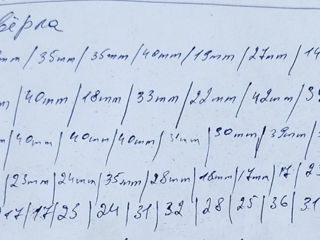 вёрла
mm/35mm/35mm/40mm/19mm/27mm/14
/40mm/18mm/33mm/22mm/42mm/3
/40mm/40mm/40mm/31mm/30mm/39mm/3
/23mm/24mm/35mm/28mm/18mm/17mm/17/23
17/17/23/24/31/32/28/25/36/31